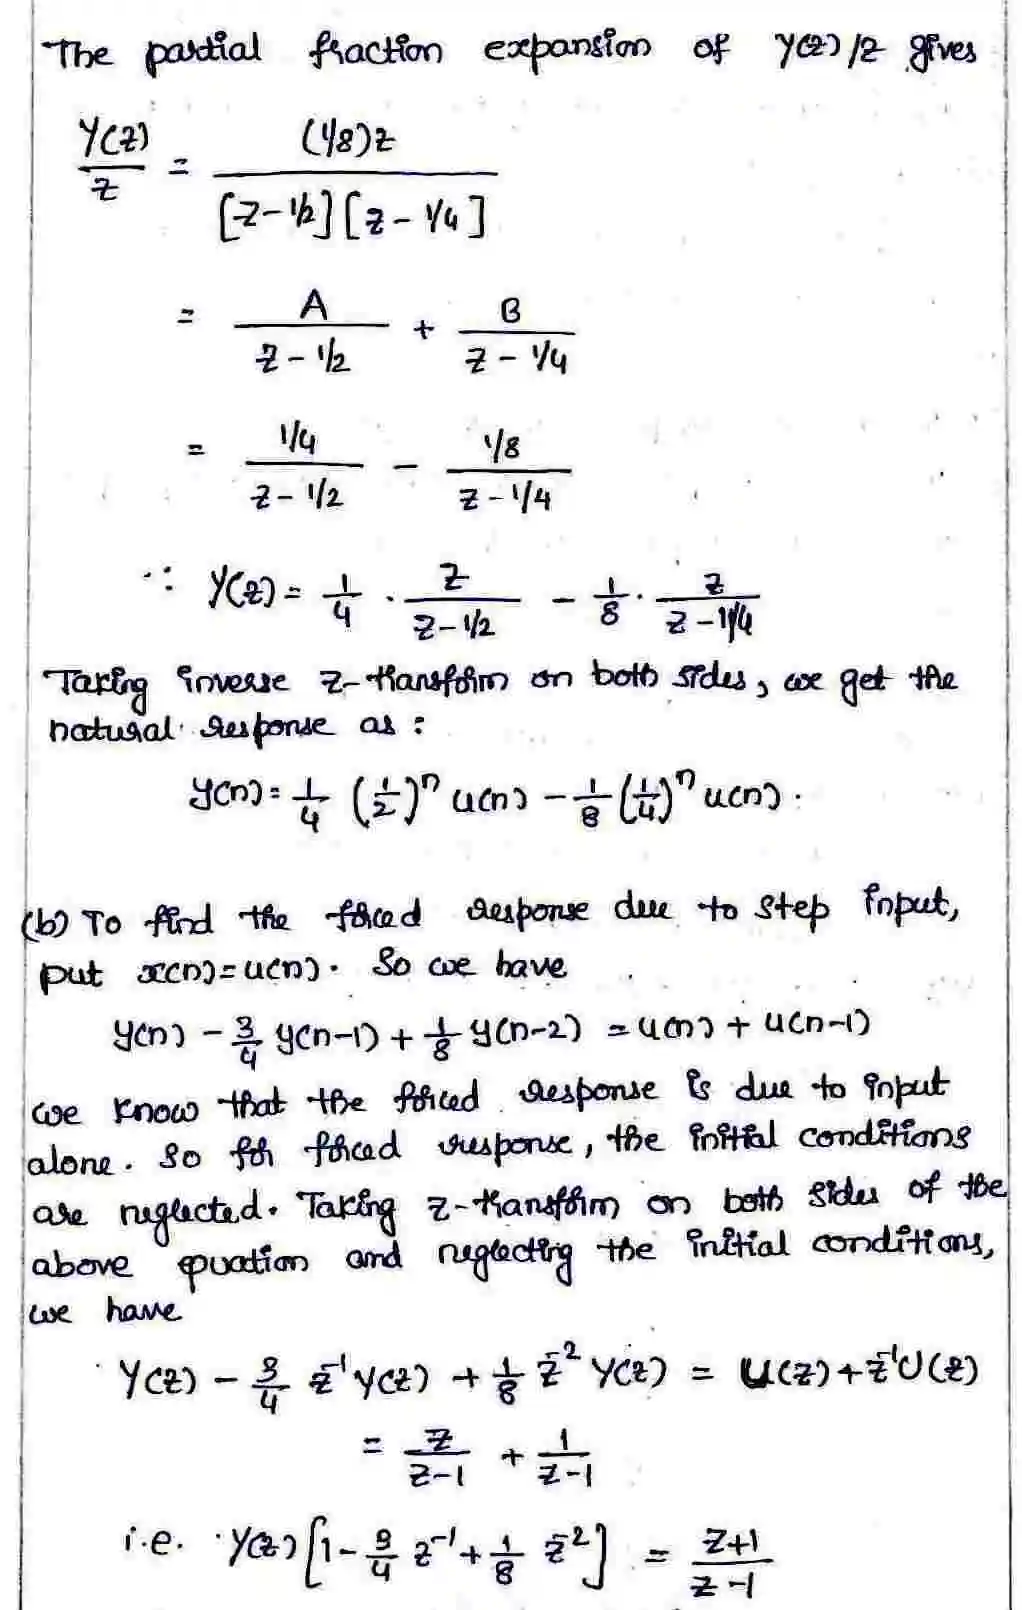 The partial fraction expansion of Y(z)/z gives
Y(z)/z = (1/8)z / [z-1/2][z-1/4]
= A/(z-1/2) + B/(z-1/4)
= (1/4)/(z-1/2) - (1/8)/(z-1/4)
∴ Y(z) = 1/4 · z/(z-1/2) - 1/8 · z/(z-1/4)
Taking inverse z-transform on both sides, we get the
natural response as :
y(n) = 1/4 (1/2)^n u(n) - 1/8 (1/4)^n u(n).
(b) To find the forced response due to step input,
put x(n)=u(n). So we have
y(n) - 3/4 y(n-1) + 1/8 y(n-2) = u(n) + u(n-1)
we know that the forced response is due to input
alone. So for forced response, the initial conditions
are neglected. Taking z-transform on both sides of the
above equation and neglecting the initial conditions,
we have
Y(z) - 3/4 z^-1 Y(z) + 1/8 z^-2 Y(z) = U(z) + z^-1 U(z)
= z/(z-1) + 1/(z-1)
i.e. Y(z) [1 - 3/4 z^-1 + 1/8 z^-2] = (z+1)/(z-1)